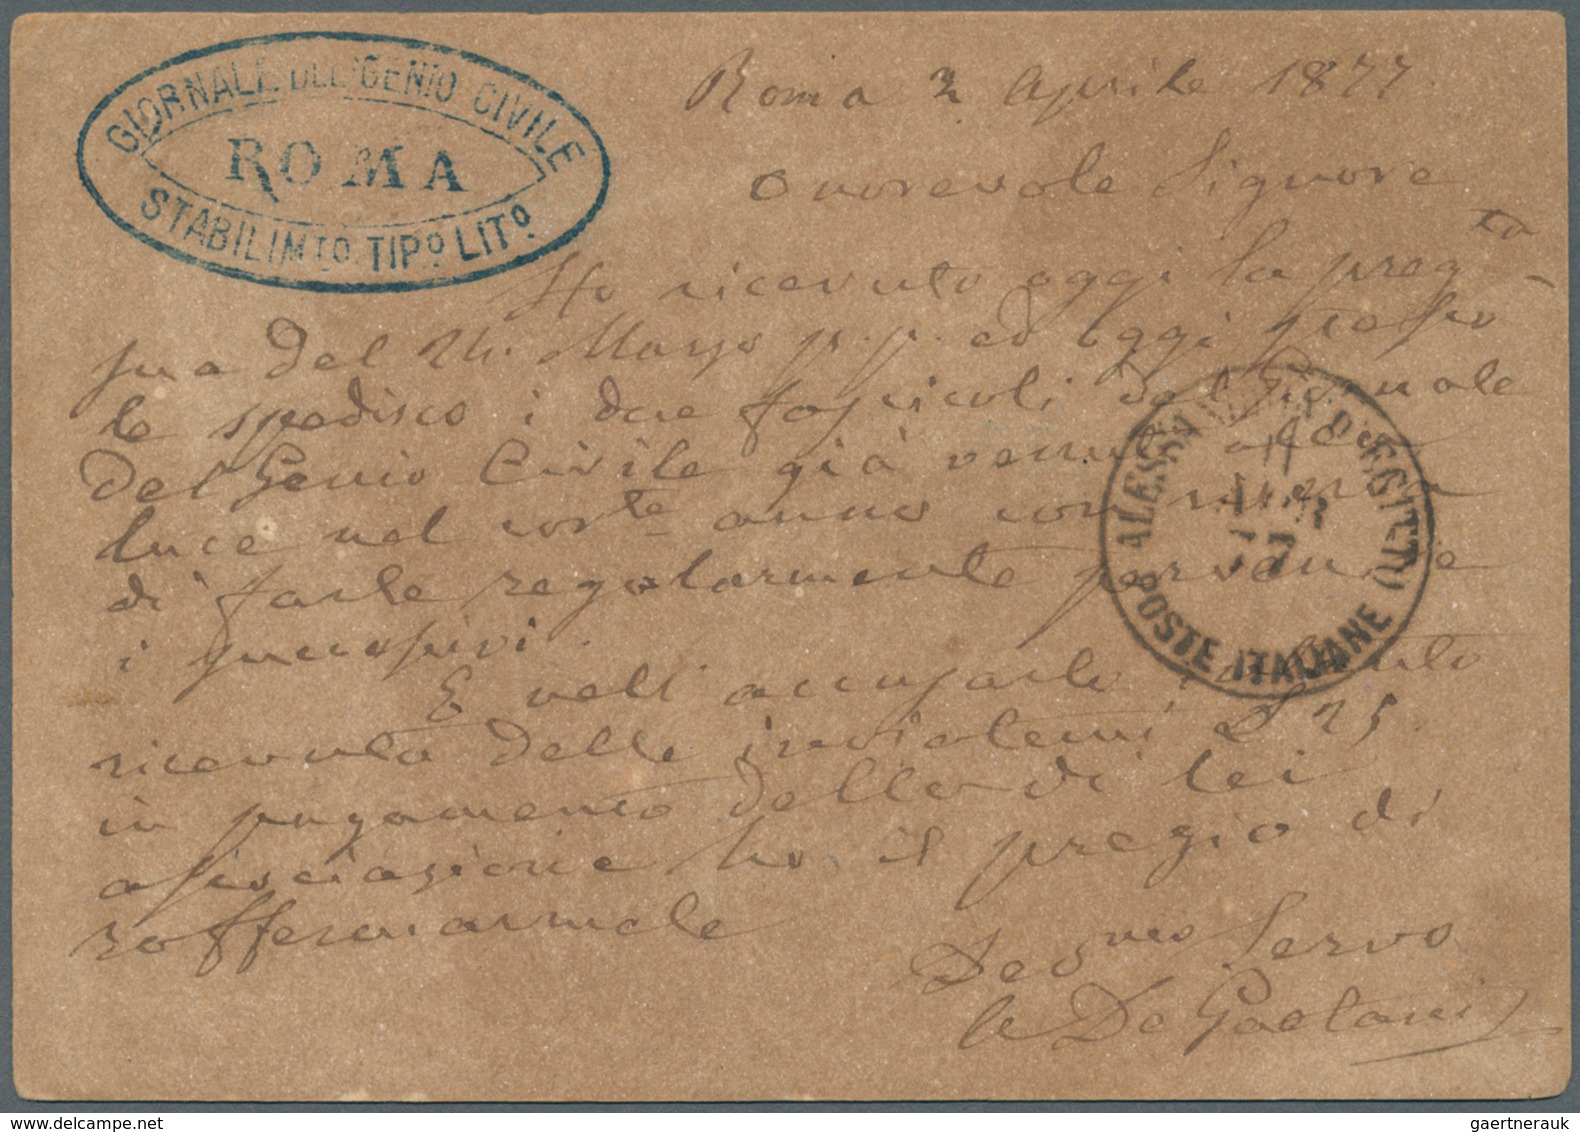 GIORNALE DEL GENIO CIVILE
ROMA
STABILIMTO TIPO LITO
Roma 2 Aprile 1877
Onorevole Signore
Ho ricevuto oggi la pregta
sua del 24 Marzo p.p. ed oggi stesso
le spedisco i due fascicoli del Giornale
del Genio Civile già venuti alla
luce nel corrte anno con riserva
di farle regolarmente pervenire
i successivi.
E nell' accusarle
ricevuta delle inviatemi £ 25
in pagamento della di lei
associazione ho il pregio di
raffermarmele
Devmo Servo
De Gaetani
ALESSANDRIA D'EGITTO
11
APR
77
POSTE ITALIANE
gaertnerauk